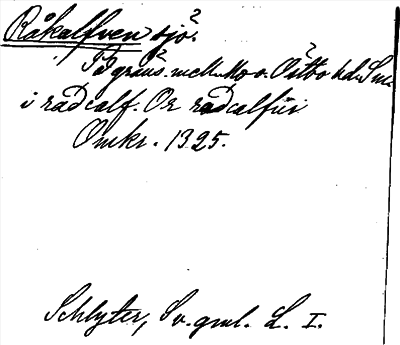 Råkalfven sjö?
På gräns. mell. Mo o. Östbo hd. Sm.
i radcalf. Or radcalfui
Omkr. 1325.
Schlyter, Sv. gml. L. I.